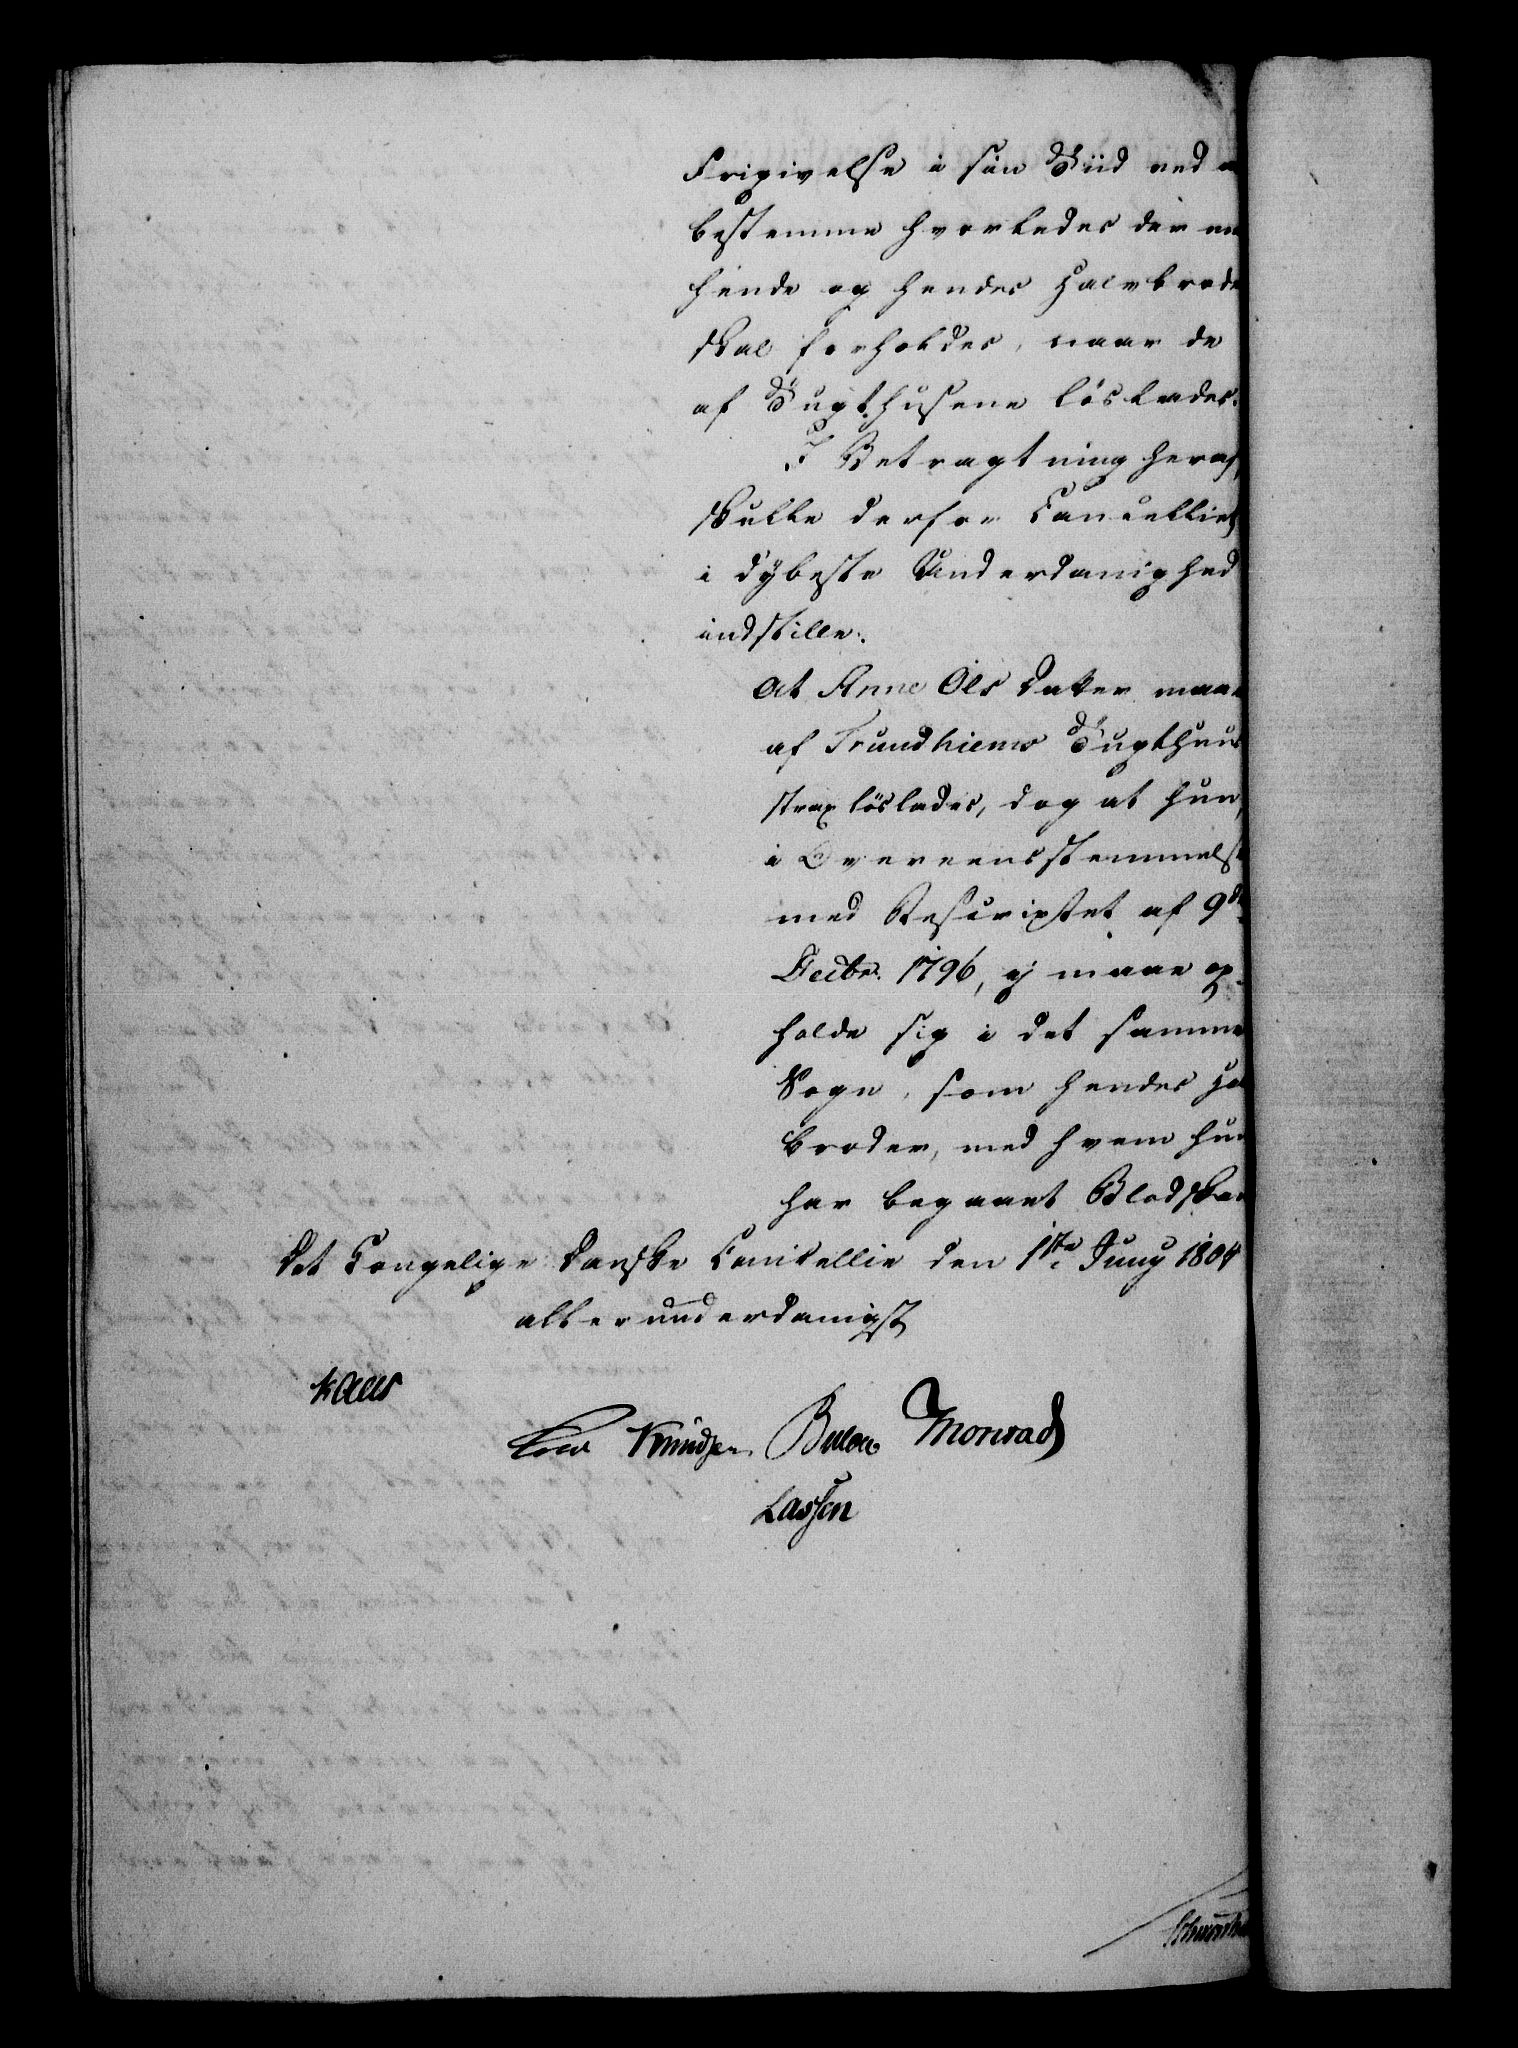 Frigivelse i sin Tiid ved
bestemme hvorledes der
hende og hendes Halvbrode
skal forholdes, naar de
af Tugthusene löslades.
I Betragtning heraf,
skulle derfor Cancelliet
i dÿbeste Underdanighed
indstille:
At Anne Ols Datter maae
af Trundhiems Tugthuus
strax löslades, dog at hun,
i Overeensstemmelse
med Rescriptet af 9de
Decbr. 1796, ej maae op-
holde sig i det samme
Sogn, som hendes Hal
broder, med hvem hun
har begaaet Blodskam
Det Kongelige Danske Cancellie den 1ste Juny 1804
allerunderdanigst
Kaas
Knudsen Bülow Monrad
Lassen